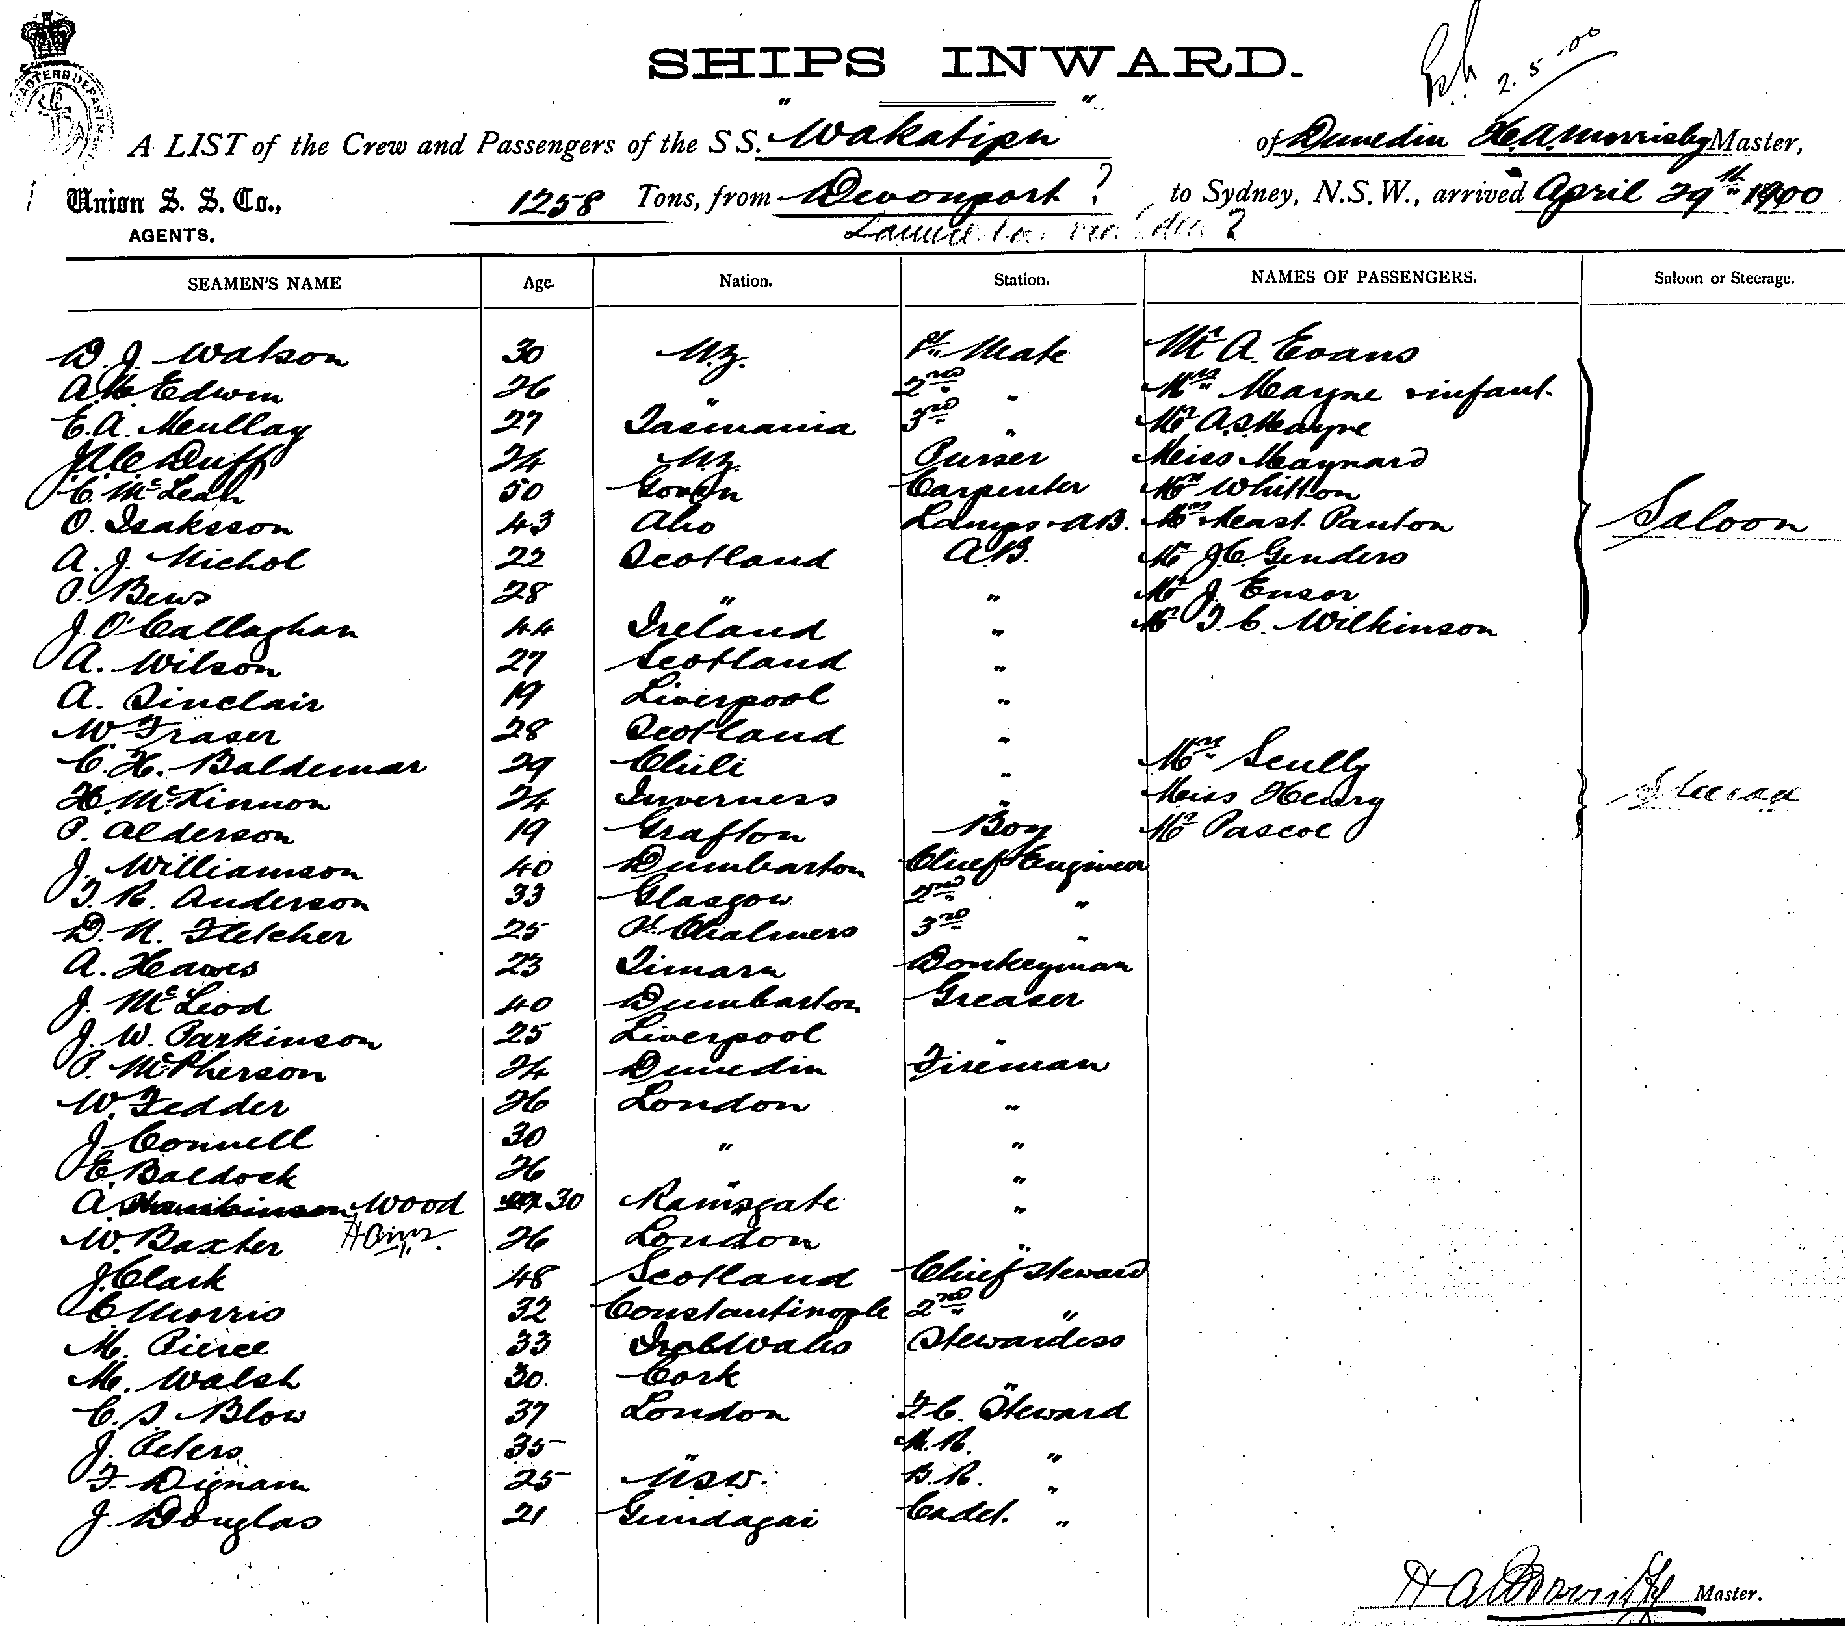 SHIPS INWARD.
2.5.00
A LIST of the Crew and Passengers of the S S. "Wakatipu" of Dunedin H.A. Morrisby Master,
Union S. S. Co., 1258 Tons, from Devonport ? to Sydney, N.S.W., arrived April 29th 1900
AGENTS.
SEAMEN'S NAME Age. Nation. Station. NAMES OF PASSENGERS. Saloon or Steerage.
D. J. Watson 30 N.Z. 1st Mate Mr A. Evans
A. Edwin 26 " 2nd " Mrs Mayne & infant
E. A. Meullay 27 Tasmania 3rd " Mr A. S. Mayne
Duff 24 N.Z. Purser Miss Maynard
C. McLean 50 Govan Carpenter Mrs Whitton
O. Isaksson 43 Abo Lamps & AB. Mrs & Mast. Panton Saloon
A. J. Nichol 22 Scotland A.B. Mr J. C. Genders
P. Bews 28 " " Mr J. Ensor
J. O'Callaghan 44 Ireland " Mr T. C. Wilkinson
A. Wilson 27 Scotland "
A. Sinclair 19 Liverpool "
W. Fraser 28 Scotland "
C. H. Baldemar 29 Chili " Mrs Scully
H. McKinnon 24 Inverness " Miss Henry Steerage
P. Alderson 19 Grafton Boy Mr Pascoe
J. Williamson 40 Dumbarton Chief Engineer
T. R. Anderson 33 Glasgow 2nd "
D. N. Fletcher 25 Pt. Chalmers 3rd "
A. Hawes 23 Timaru Donkeyman
J. McLeod 40 Dumbarton Greaser
J. W. Parkinson 25 Liverpool "
P. McPherson 24 Dunedin Fireman
W. Fedder 26 London "
J. Connell 30 " "
E. Baldock 26 " "
A. Wood 30 Ramsgate "
W. Baxter 26 London "
J. Clark 48 Scotland Chief Steward
C. Morris 32 Constantinople 2nd "
M. Pierce 33 Stewardess
M. Walsh 30 Cork "
C. S. Blow 37 London F.C. Steward
J. Peters 35 " M.R. "
F. Dignam 25 NSW. B.R. "
J. Douglas 21 Gundagai Cadet. "
H A Morrisby Master.